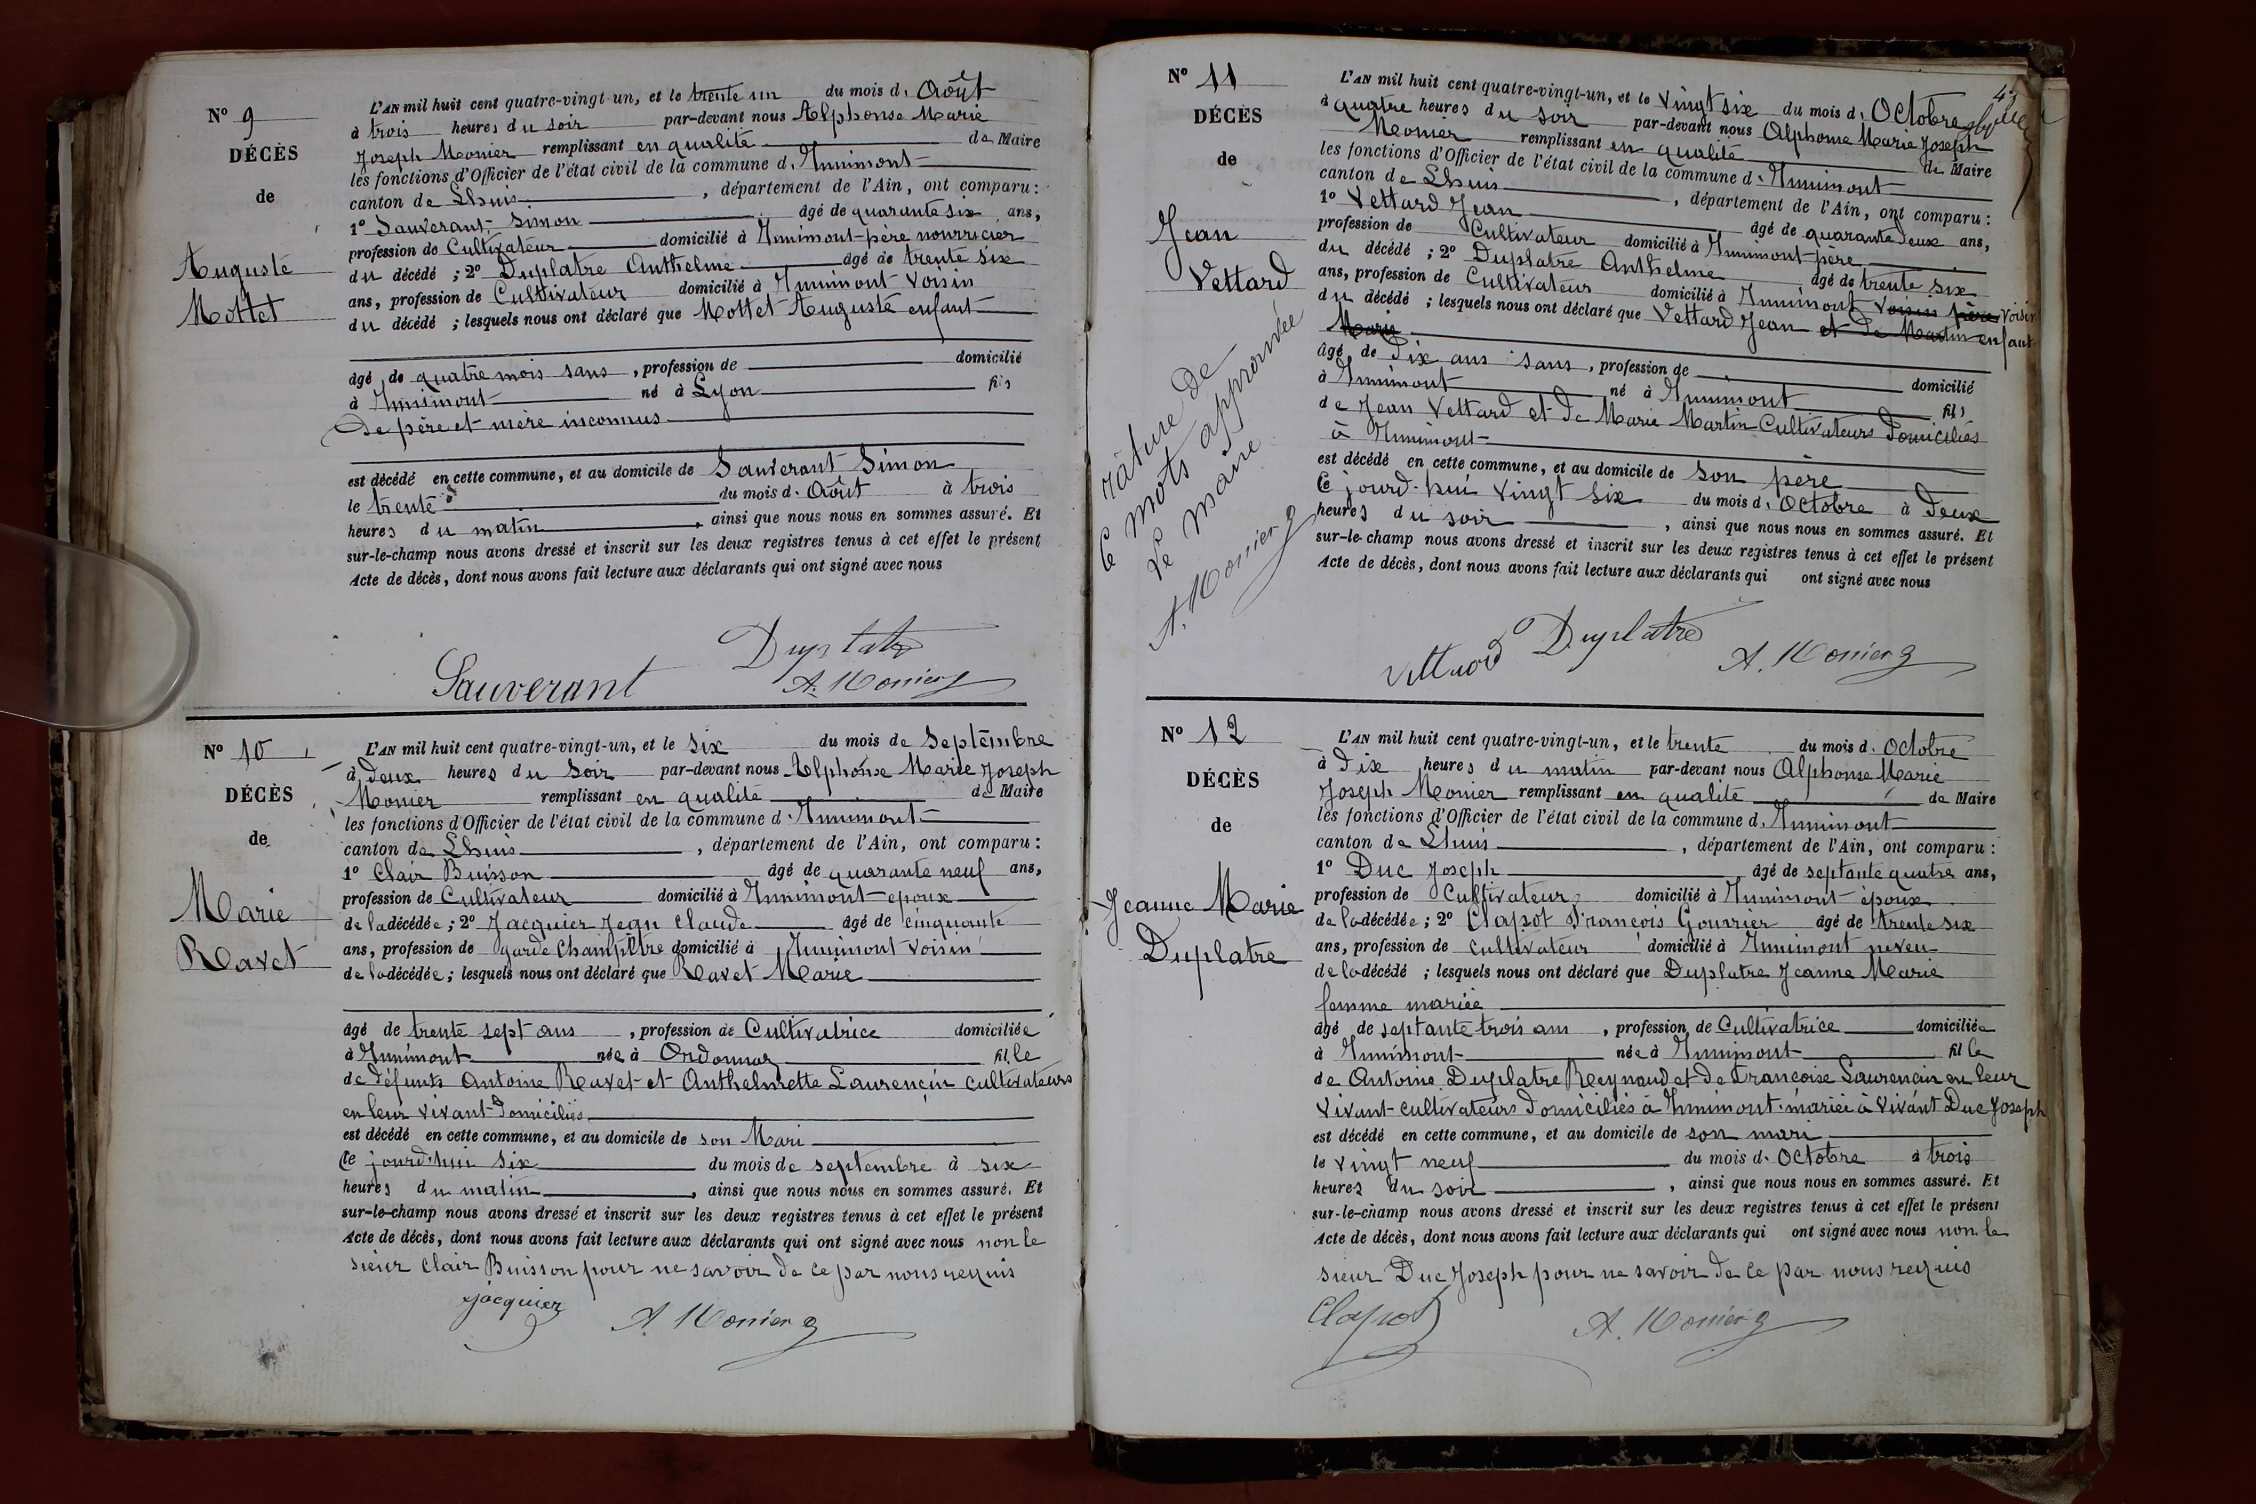 N° 9
DÉCÈS
de
Auguste
Mottet
L'AN mil huit cent quatre-vingt-un, et le trente un du mois d. Août
à trois heures du soir par-devant nous Alphonse Marie
Joseph Monier remplissant en qualité de Maire
les fonctions d'Officier de l'état civil de la commune d. Innimont
canton de Lhuis, département de l'Ain, ont comparu :
1° Sauverant Simon âgé de quarante six ans,
profession de Cultivateur domicilié à Innimont père nourricier
du décédé ; 2° Duplatre Anthelme âgé de trente six
ans, profession de Cultivateur domicilié à Innimont voisin
du décédé ; lesquels nous ont déclaré que Mottet Auguste enfant
âgé de quatre mois sans, profession de domicilié
à Innimont né à Lyon fils
de père et mère inconnus
est décédé en cette commune, et au domicile de Sauverant Simon
le trente du mois d. Août à trois
heures du matin, ainsi que nous nous en sommes assuré. Et
sur-le-champ nous avons dressé et inscrit sur les deux registres tenus à cet effet le présent
Acte de décès, dont nous avons fait lecture aux déclarants qui ont signé avec nous
Duplatre
Sauverant A. Monier
N° 10
DÉCÈS
de
Marie
Ravet
L'AN mil huit cent quatre-vingt-un, et le six du mois de Septembre
à deux heures du Soir par-devant nous Alphonse Marie Joseph
Monier remplissant en qualité de Maire
les fonctions d'Officier de l'état civil de la commune d. Innimont
canton de Lhuis, département de l'Ain, ont comparu :
1° Clair Buisson âgé de quarante neuf ans,
profession de Cultivateur domicilié à Innimont époux
de la décédée ; 2° Jacquier Jean Claude âgé de cinquante
ans, profession de garde Champêtre domicilié à Innimont voisin
de la décédée ; lesquels nous ont déclaré que Ravet Marie
âgé de trente sept ans, profession de Cultivatrice domiciliée
à Innimont née à Ordonnaz fille
de défunts Antoine Ravet et Anthelmette Laurencin cultivateurs
en leur vivant domiciliés
est décédé en cette commune, et au domicile de son Mari
Ce jourd'hui six du mois de septembre à six
heures du matin, ainsi que nous nous en sommes assuré. Et
sur-le-champ nous avons dressé et inscrit sur les deux registres tenus à cet effet le présent
Acte de décès, dont nous avons fait lecture aux déclarants qui ont signé avec nous non le
sieur Clair Buisson pour ne savoir de ce par nous requis
Jacquier A Monier
N° 11
DÉCÈS
de
Jean
Vettard
rature de
6 mots approuvée
Le maire
A. Monier
L'AN mil huit cent quatre-vingt-un, et le vingt six du mois d. Octobre
à quatre heures du soir par-devant nous Alphonse Marie Joseph
Monier remplissant en qualité de Maire
les fonctions d'Officier de l'état civil de la commune d. Innimont
canton de Lhuis, département de l'Ain, ont comparu :
1° Vettard Jean âgé de quarante deux ans,
profession de Cultivateur domicilié à Innimont père
du décédé ; 2° Duplatre Anthelme âgé de trente six
ans, profession de Cultivateur domicilié à Innimont voisin père voisin
du décédé ; lesquels nous ont déclaré que Vettard Jean et de Martin enfant
Marie
âgé de dix ans sans, profession de domicilié
à Innimont né à Innimont fils
de Jean Vettard et de Marie Martin Cultivateurs domiciliés
à Innimont
est décédé en cette commune, et au domicile de son père
Ce jourd'hui vingt six du mois d. Octobre à deux
heures du soir, ainsi que nous nous en sommes assuré. Et
sur-le-champ nous avons dressé et inscrit sur les deux registres tenus à cet effet le présent
Acte de décès, dont nous avons fait lecture aux déclarants qui ont signé avec nous
Vettard Duplatre A. Monier
N° 12
DÉCÈS
de
Jeanne Marie
Duplatre
L'AN mil huit cent quatre-vingt-un, et le trente du mois d. Octobre
à dix heures du matin par-devant nous Alphonse Marie
Joseph Monier remplissant en qualité de Maire
les fonctions d'Officier de l'état civil de la commune d. Innimont
canton de Lhuis, département de l'Ain, ont comparu :
1° Duc Joseph âgé de septante quatre ans,
profession de Cultivateur domicilié à Innimont époux
de la décédée ; 2° Clapot François Gourrier âgé de trente six
ans, profession de cultivateur domicilié à Innimont neveu
de la décédé ; lesquels nous ont déclaré que Duplatre Jeanne Marie
femme mariée
âgé de septante trois ans, profession de Cultivatrice domiciliée
à Innimont née à Innimont fille
de Antoine Duplatre Reynaud et de Françoise Laurencin en leur
vivant cultivateurs domiciliés à Innimont mariée à vivant Duc Joseph
est décédé en cette commune, et au domicile de son mari
le vingt neuf du mois d. Octobre à trois
heures du soir, ainsi que nous nous en sommes assuré. Et
sur-le-champ nous avons dressé et inscrit sur les deux registres tenus à cet effet le présent
Acte de décès, dont nous avons fait lecture aux déclarants qui ont signé avec nous non le
sieur Duc Joseph pour ne savoir de ce par nous requis
Clapot A. Monier